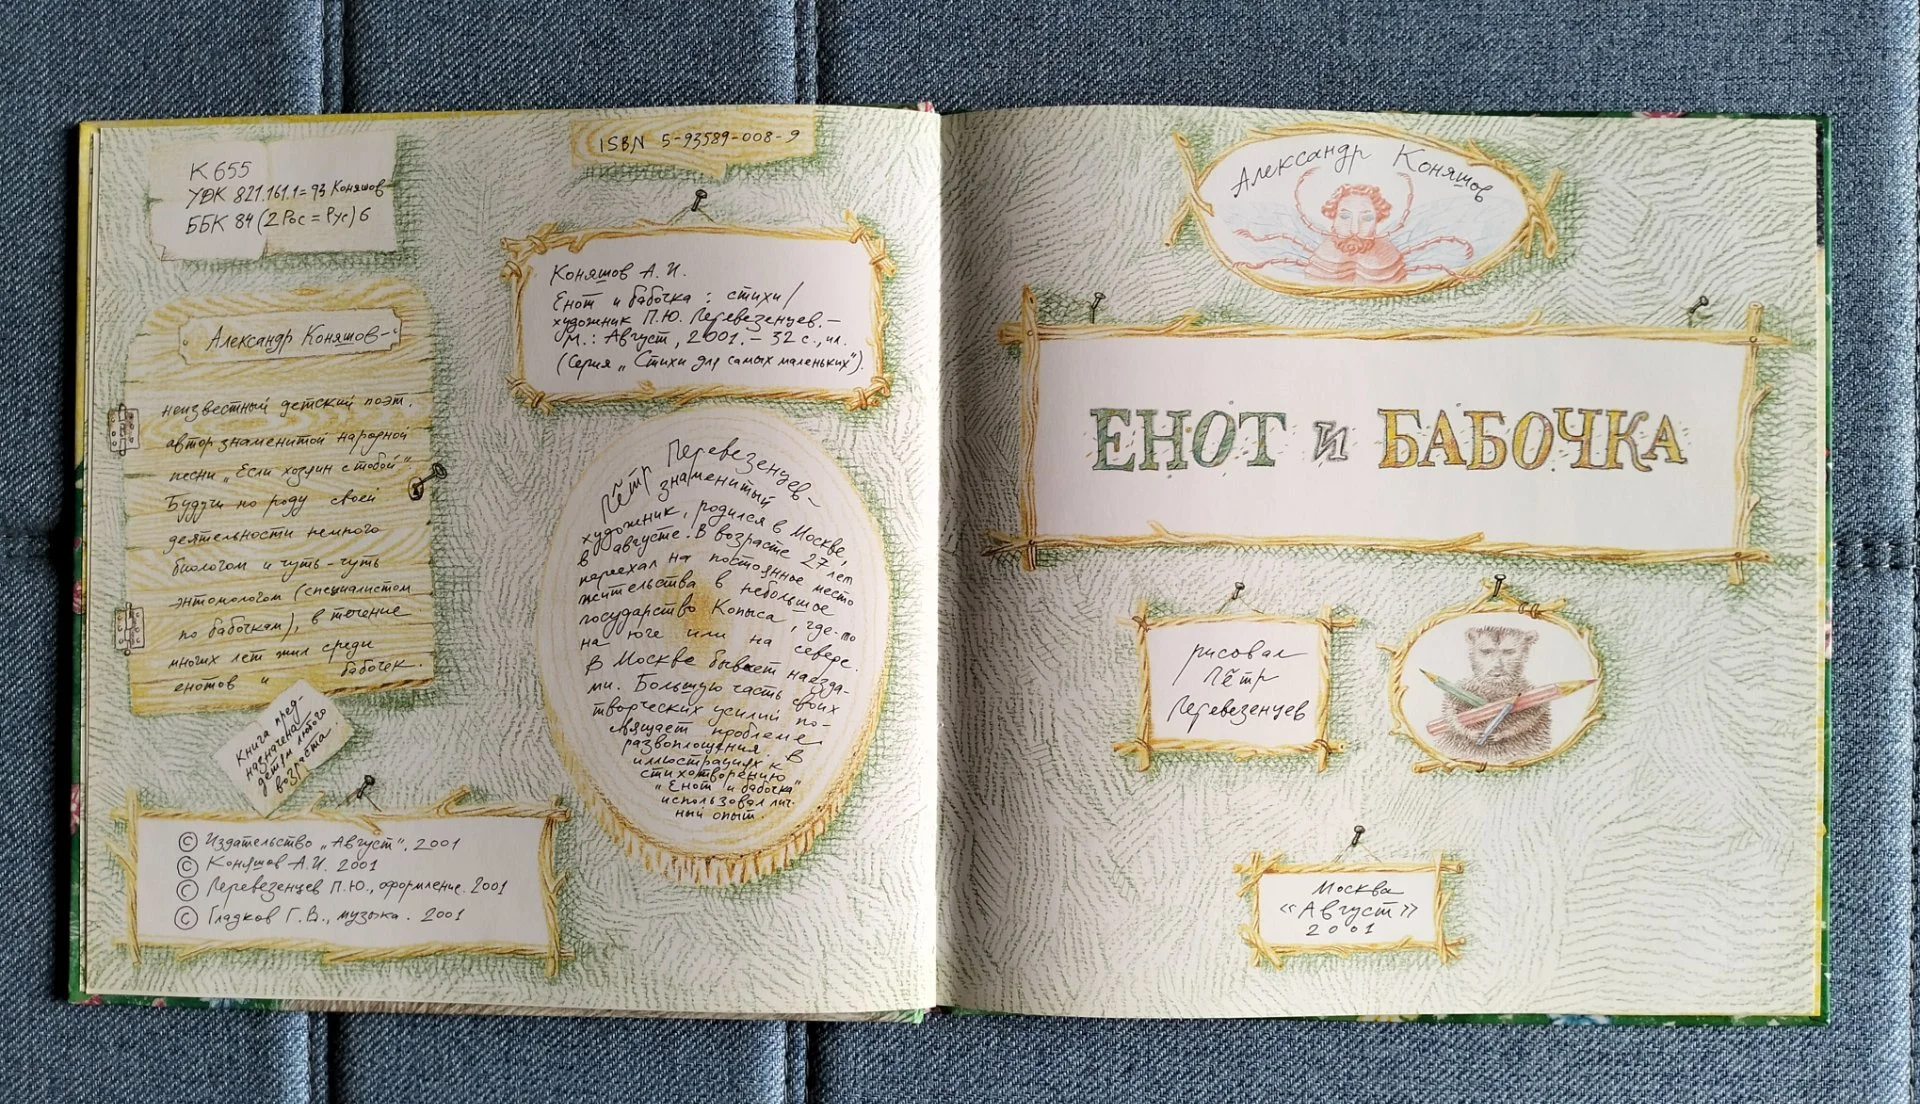 К 655
УДК 821.161.1=93 Коняшов
ББК 84 (2Рос=Рус) 6
ISBN 5-93589-008-9
Коняшов А. И.
Енот и бабочка : стихи /
художник П.Ю. Перевезенцев. –
М.: Август, 2001. – 32 с., ил.
(Серия „Стихи для самых маленьких").
Александр Коняшов –
неизвестный детский поэт,
автор знаменитой народной
песни „Если хозяин с тобой".
Будучи по роду своей
деятельности немного
биологом и чуть-чуть
энтомологом (специалистом
по бабочкам), в течение
многих лет жил среди
енотов и бабочек.
Пётр Перевезенцев –
знаменитый
художник, родился в Москве,
в августе. В возрасте 27 лет
переехал на постоянное место
жительства в небольшое
государство Копыса, где-то
на юге или на севере.
В Москве бывает наезда-
ми. Большую часть своих
творческих усилий по-
свящает проблеме
развоплощения. В
иллюстрациях к
стихотворению
„Енот и бабочка"
использовал лич-
ный опыт.
Книга пред-
назначена
детям любого
возраста.
© Издательство „Август", 2001
© Коняшов А.И. 2001
© Перевезенцев П.Ю., оформление. 2001
© Гладков Г.В., музыка. 2001
Александр Коняшов
ЕНОТ и БАБОЧКА
рисовал
Пётр
Перевезенцев
Москва
«Август»
2001